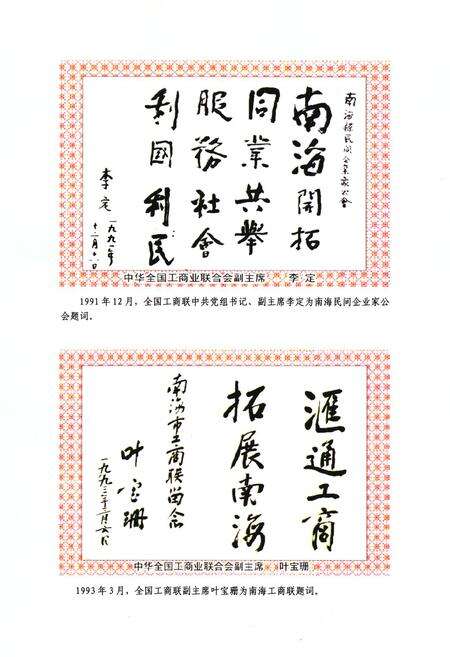 南海县民间企业家公会
南海開拓
同業共舉
服務社會
利國利民
李定
一九九一年
十二月六日
中华全国工商业联合会副主席 李 定
1991 年 12 月，全国工商联中共党组书记、副主席李定为南海民间企业家公
会题词。
滙通工商
拓展南海
南海市工商联留念
叶宝珊
一九九三年三月
中华全国工商业联合会副主席 叶宝珊
1993 年 3 月，全国工商联副主席叶宝珊为南海工商联题词。